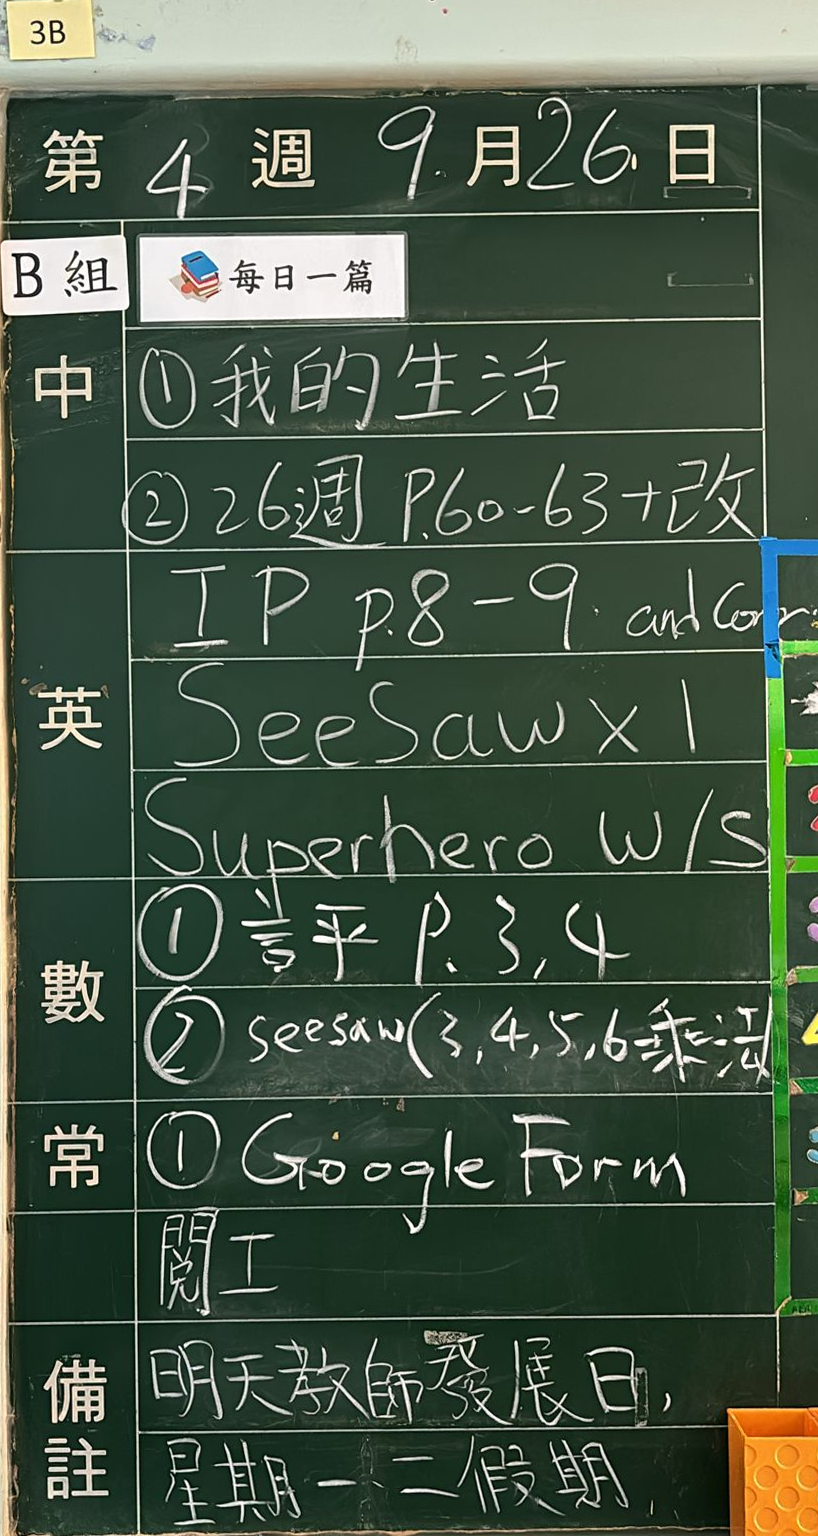 3B
第 4 週 9.月26.日
B組 每日一篇
中 ①我的生活
②26週 P.60-63+改
英 IP p.8-9. and Corr
SeeSaw x 1
Superhero W/S
數 ① 評 P. 3, 4
② seesaw(3,4,5,6乘法
常 ① Google Form
閱工
備註 明天教師發展日,
星期一、二假期.